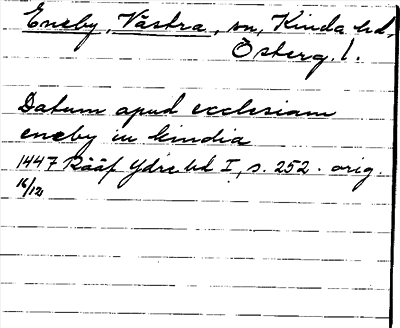 Eneby, Västra, sn, Kinda hd,
Österg. l.
Datum apud ecclesiam
eneby in kindia
1447 Rääf Ydre hd I, s. 252. orig.
16/12